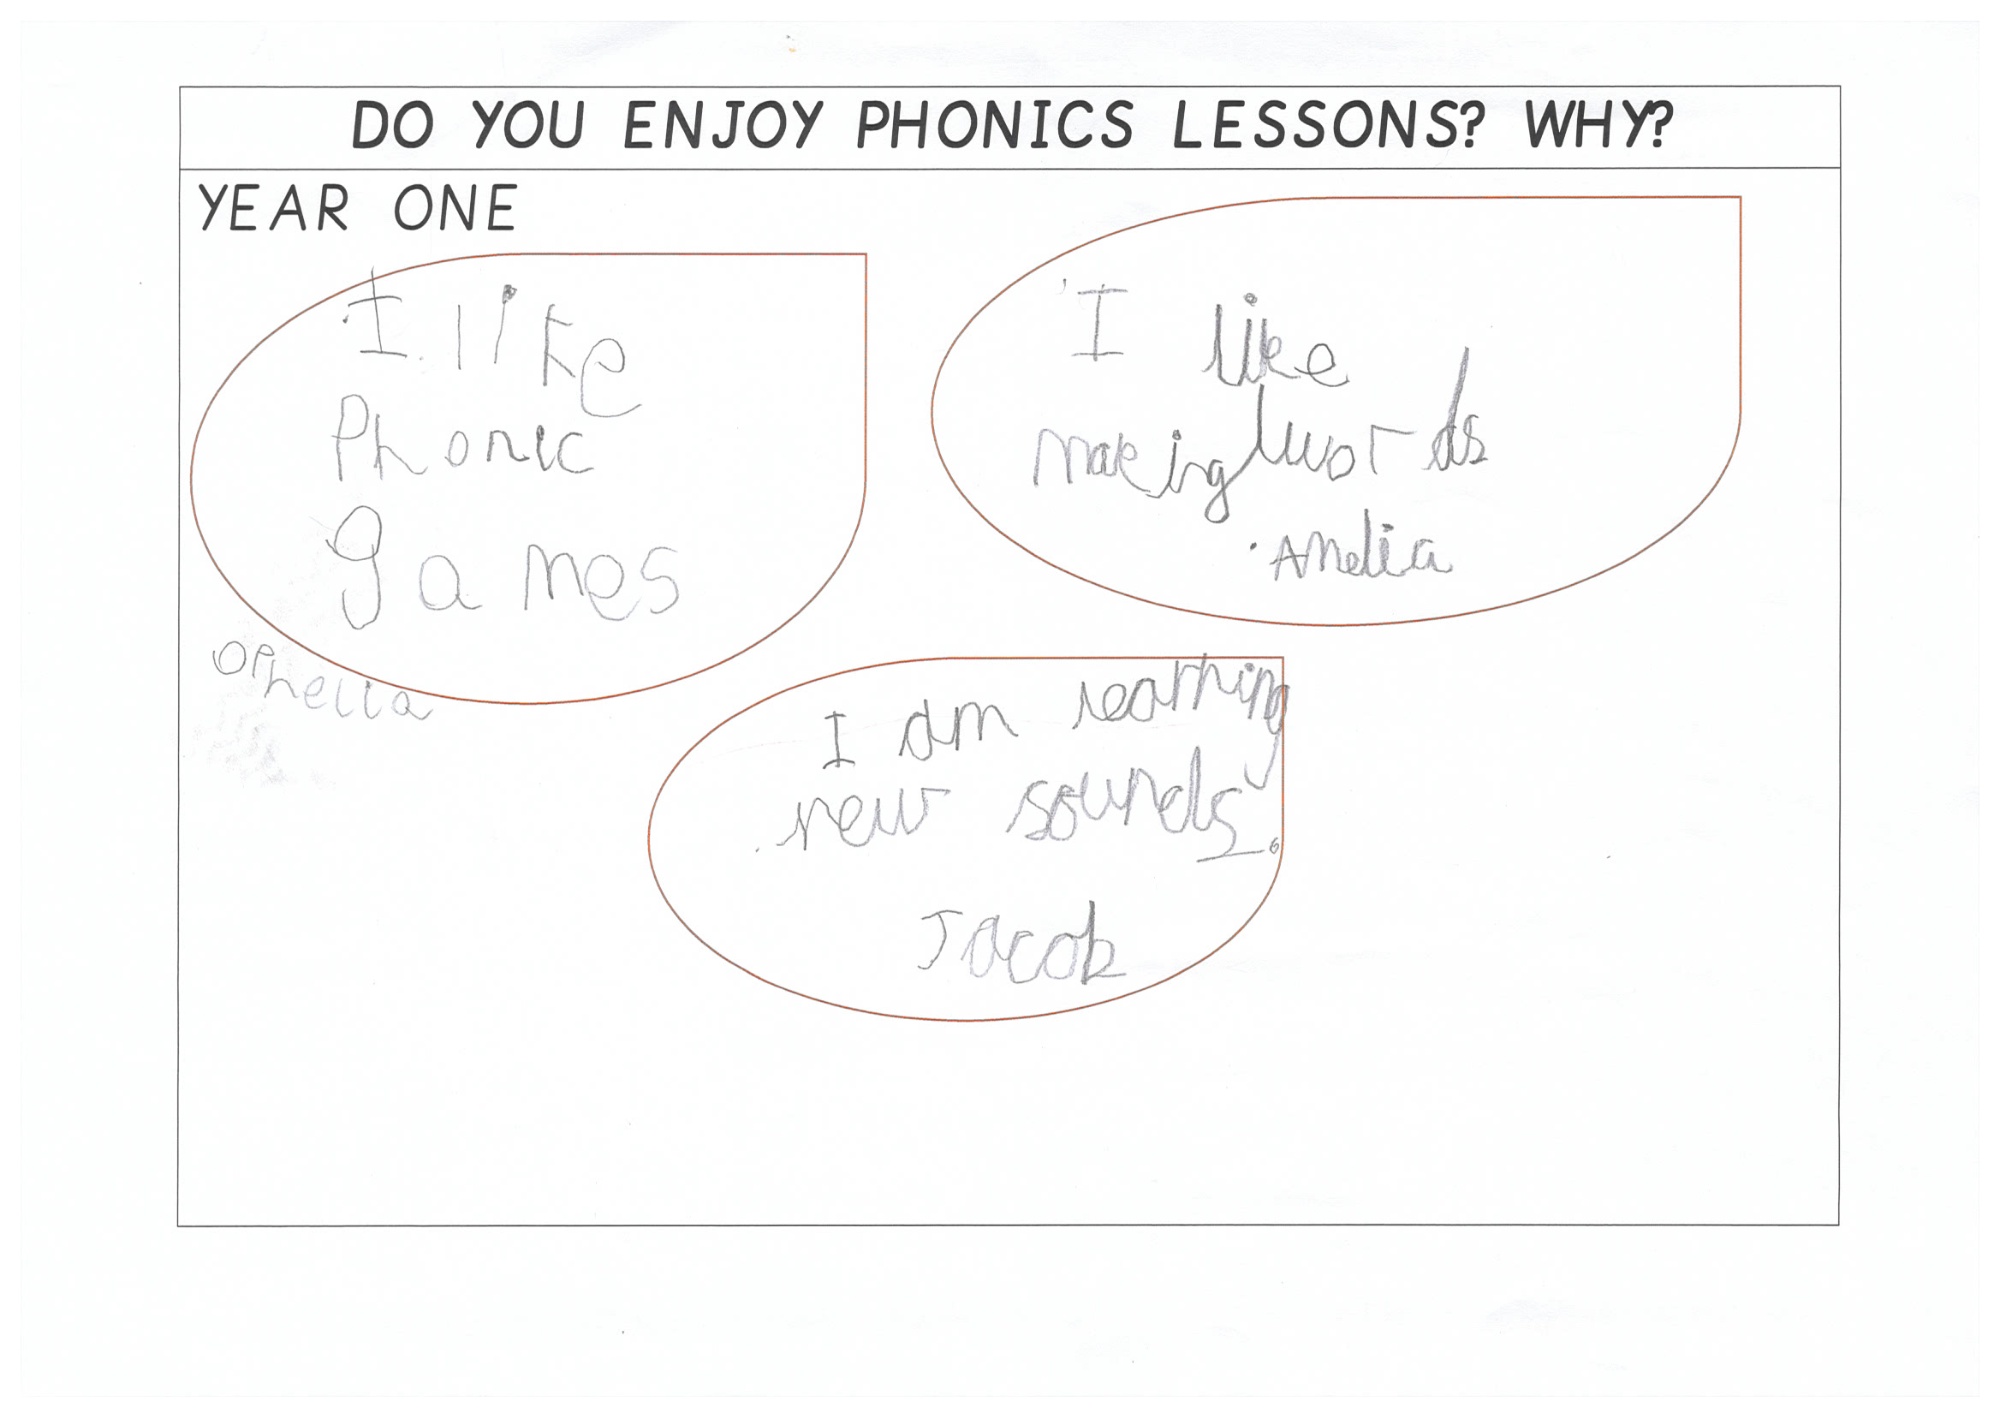 DO YOU ENJOY PHONICS LESSONS? WHY?
YEAR ONE
I like
Phonic
games
Ophelia
I like
making words
Amelia
I am learning
new sounds.
Jacob